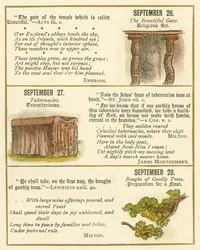 "The gate of the temple which is called
Beautiful."—Acts iii. 2.
O'er England's abbeys bends the sky,
As on its friends, with kindred eye;
For out of thought's interior sphere,
These wonders rose to upper air.
These temples grew, as grows the grass;
Art might obey, but not surpass;
The passive Master lent his hand
To the vast soul that o'er him planned.
EMERSON.
SEPTEMBER 26.
The Beautiful Gate.
Religious Art.
SEPTEMBER 27.
Tabernacles.
Transitoriness.
"Now the Jews' feast of tabernacles was
at hand."—St. JOHN vii. 2.
"For we know that if our earthly house of
this tabernacle were dissolved, we have a build-
ing of God, an house not made with hands,
eternal in the heavens."—2 COR. v. 1.
They sudden reared
Celestial tabernacles, where they slept
Fanned with cool winds.
MILTON.
Here in the body pent,
Absent from Him I roam;
Yet nightly pitch my moving tent
A day's march nearer home.
JAMES MONTGOMERY.
"Ye shall take, on that day, the boughs
of goodly trees."—LEVITICUS xxiii. 40.
. . With large wine offerings poured, and
sacred Feast
Shall spend their days in joy unblamed, and
dwell
Long time in peace by families and tribes,
Under paternal rule.
MILTON.
SEPTEMBER 28.
Boughs of Goodly Trees.
Preparation for a Feast.